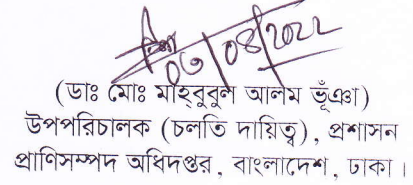 ০৩/০৪/2022
(ডাঃ মোঃ মাহবুবুল আলম ভূঁঞা)
উপপরিচালক (চলতি দায়িত্ব), প্রশাসন
প্রাণিসম্পদ অধিদপ্তর, বাংলাদেশ, ঢাকা।